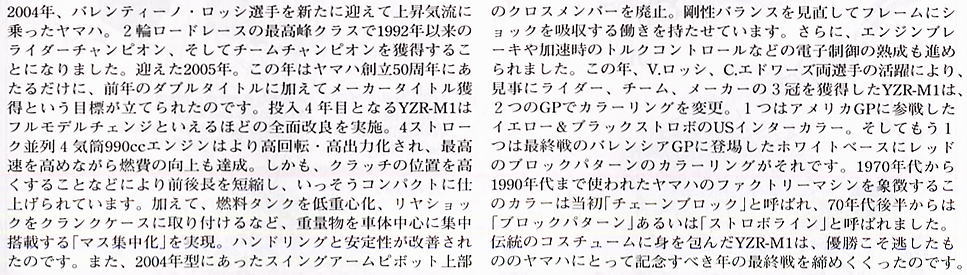 2004年、バレンティーノ・ロッシ選手を新たに迎えて上昇気流に
乗ったヤマハ。2輪ロードレースの最高峰クラスで1992年以来の
ライダーチャンピオン、そしてチームチャンピオンを獲得するこ
とになりました。迎えた2005年。この年はヤマハ創立50周年にあ
たるだけに、前年のダブルタイトルに加えてメーカータイトル獲
得という目標が立てられたのです。投入4年目となるYZR-M1は
フルモデルチェンジといえるほどの全面改良を実施。4ストロー
ク並列4気筒990ccエンジンはより高回転・高出力化され、最高
速を高めながら燃費の向上も達成。しかも、クラッチの位置を高
くすることなどにより前後長を短縮し、いっそうコンパクトに仕
上げられています。加えて、燃料タンクを低重心化、リヤショッ
クをクランクケースに取り付けるなど、重量物を車体中心に集中
搭載する「マス集中化」を実現。ハンドリングと安定性が改善され
たのです。また、2004年型にあったスイングアームピボット上部
のクロスメンバーを廃止。剛性バランスを見直してフレームにシ
ョックを吸収する働きを持たせています。さらに、エンジンブレ
ーキや加速時のトルクコントロールなどの電子制御の熟成も進め
られました。この年、V.ロッシ、C.エドワーズ両選手の活躍により、
見事にライダー、チーム、メーカーの3冠を獲得したYZR-M1は、
2つのGPでカラーリングを変更。1つはアメリカGPに参戦した
イエロー&ブラックストロボのUSインターカラー。そしてもう1
つは最終戦のバレンシアGPに登場したホワイトベースにレッド
のブロックパターンのカラーリングがそれです。1970年代から
1990年代まで使われたヤマハのファクトリーマシンを象徴するこ
のカラーは当初「チェーンブロック」と呼ばれ、70年代後半からは
「ブロックパターン」あるいは「ストロボライン」と呼ばれました。
伝統のコスチュームに身を包んだYZR-M1は、優勝こそ逃したも
ののヤマハにとって記念すべき年の最終戦を締めくくったのです。